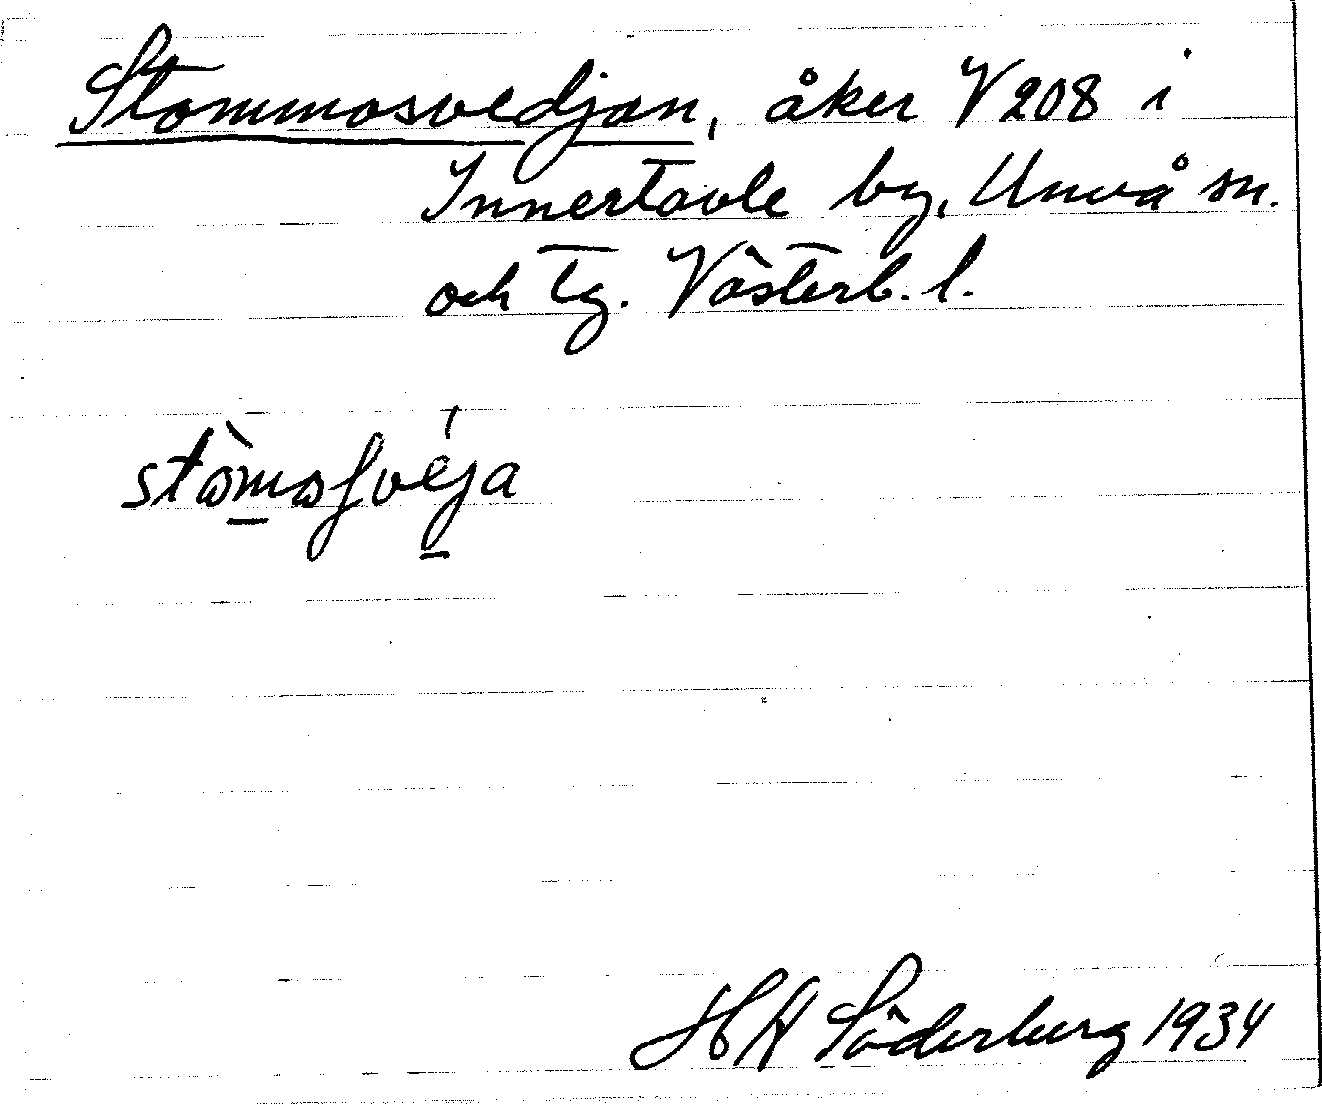 Stommosvedjan, åker V 208 i
Innertavle by, Umeå sn.
och tg. Västerb. l.
H H Söderberg 1934